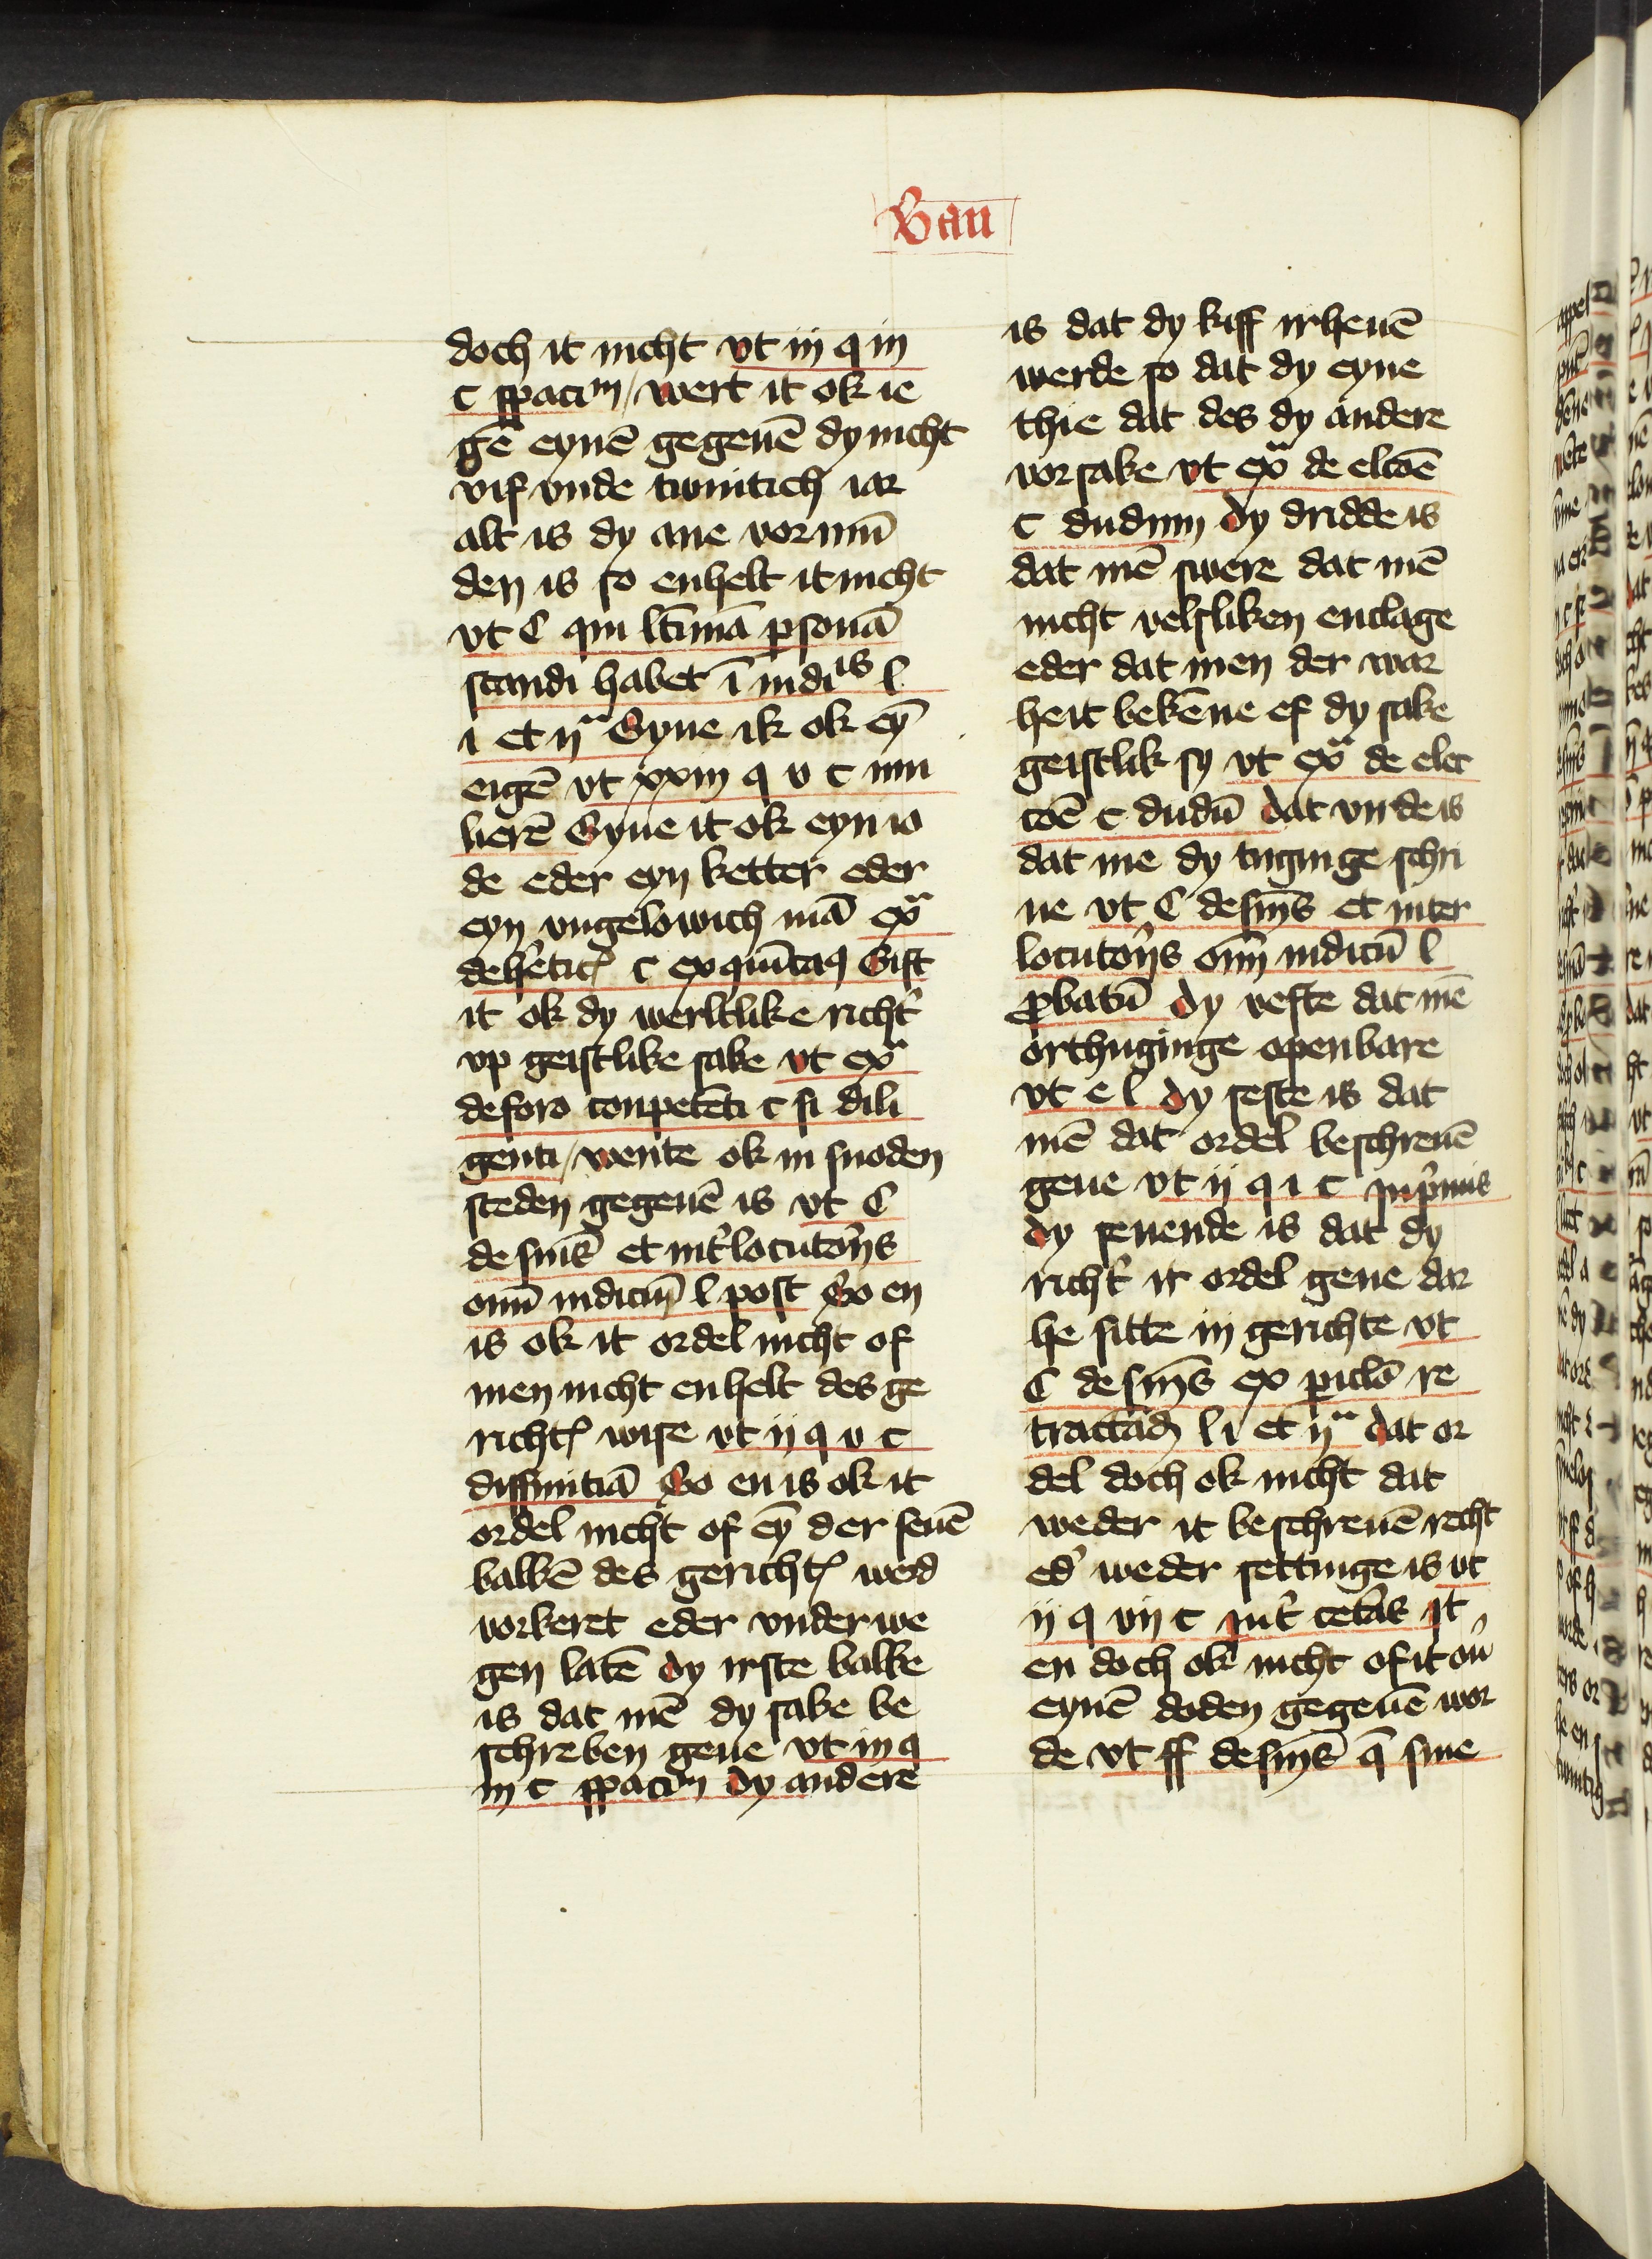 Ban
doch it nicht vt iij q iij
c spaciu(m) / wert it ok ie
gē eynē gegeuē dy nicht
vif vnde twintich iar
alt is dy ane vormū
den is so enhelt it nicht
vt C qui ltimā psonā
standi habet ī iudiis l
i et ijª Syne ik ok eȳ
eigē vt xxiij q v c mu
lierē Syne it ok eyn io
de eder eyn ketter eder
eyn vngelowich mā exª
de hetic c excōicaq Gift
it ok dy werltlike richt'
vp geistlike sake vt exª
de foro conpetēti c si dili
genti / wente ok in snoden
steden gegeuē is vt C
de snīs et int'locutorijs
oīm iudicuȝ l post So en
is ok it ordel nicht of
men nicht enhelt des ge
richtȝ wise vt ij q v c
diffinitiā So en is ok it
ordel nicht of eȳ der seuē
balkē des gerichtȝ werd
vorkeret eder vnderwe
gen latē dy irste balke
is dat mē dy sake be
schreben geue vt iij q
iij c spaciu(m) dy andere
is dat dy kiff irheuē
werde so dat dy eyne
thie dat des dy andere
vorsake vt exª de elcōē
c dudum dy dridde is
dat mē swere dat mē
nicht velsliken enclage
eder dat men der war
heit bekēne ef dy sake
geistlik sy vt exª de elec
cōē c dudū dat virde is
dat me dy tuginge schri
ue vt C de snīs et inter
locutorijs oīm iudicū l
pbatū dy vefte dat mē
orthuginge openbare
vt e l dy seste is dat
mē dat ordel beschreuē
geue vt ij q i c inpmis
dy seuende is dat dy
richt' ir ordel geue dar
he sitte in gerichte vt
C de snīs ex piclō re
tractādȝ l i et ijª dat or
del doch ok nicht dat
weder it beschreuē recht
ed' weder settinge is vt
ij q vij c int' cet'as it
en doch ok nicht of it ou'
eynē doden gegeuē wor
de vt ff de snīs q̄ sine